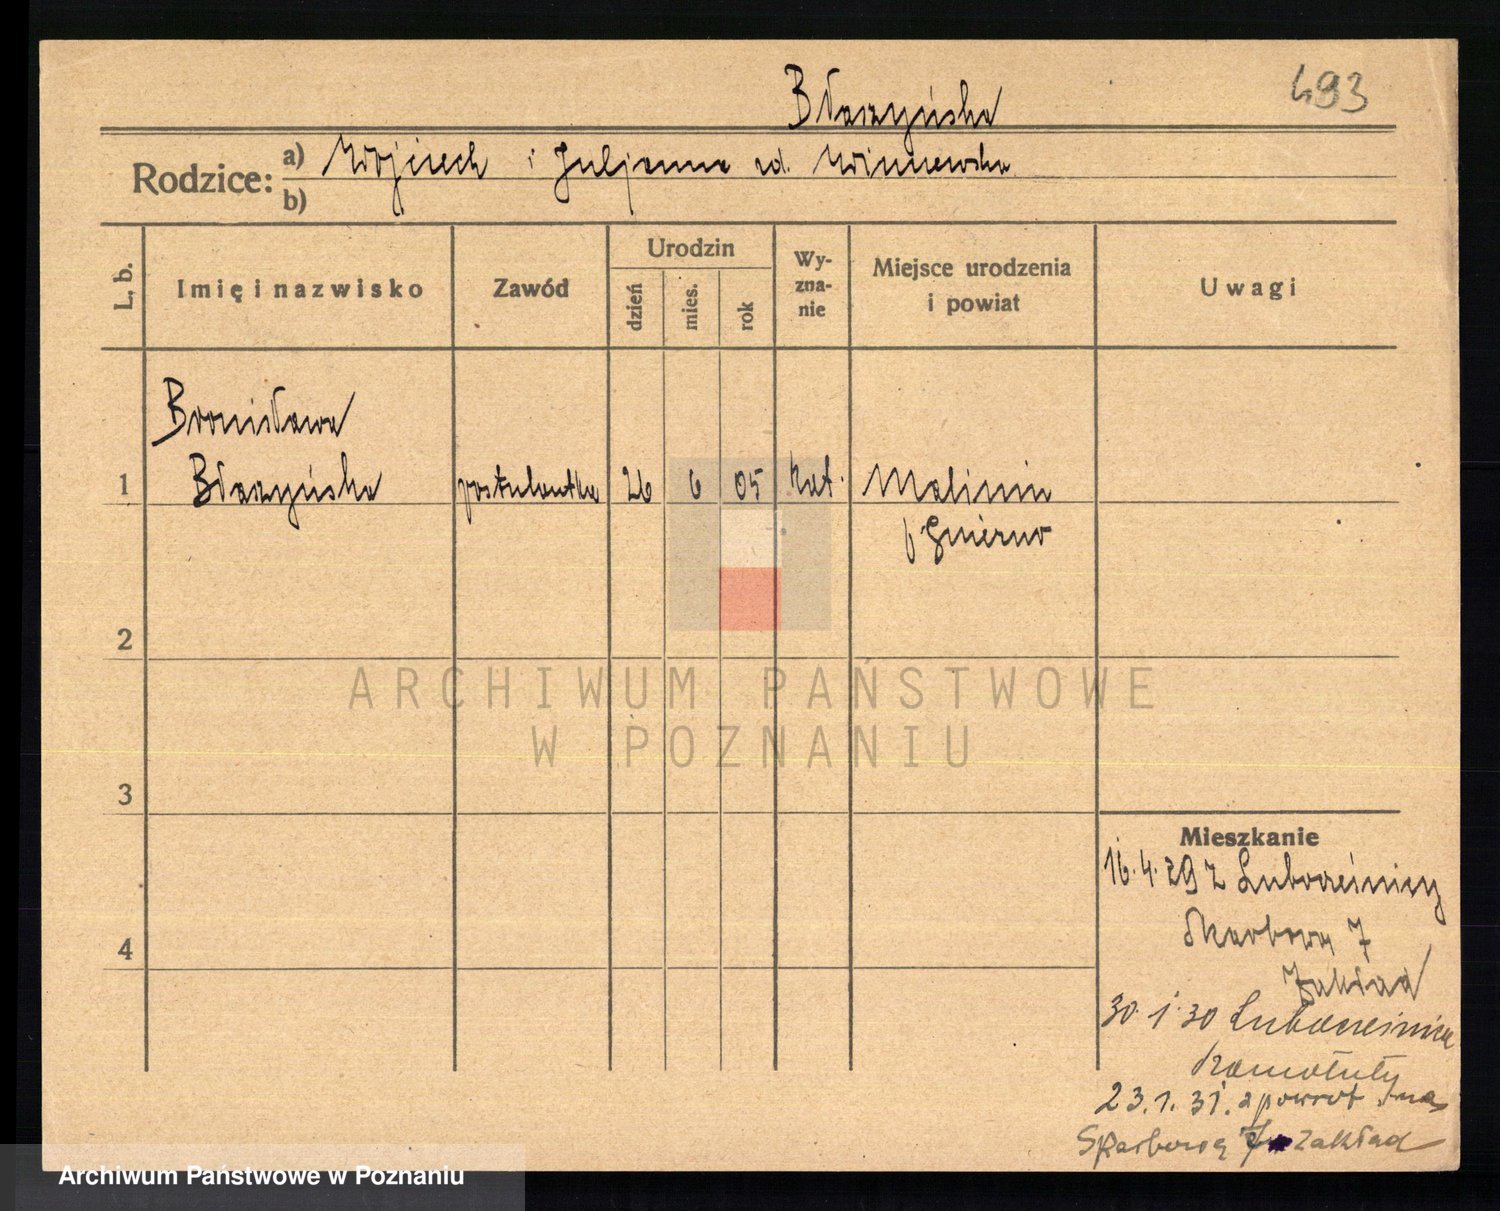 Błaszyńska
493
Rodzice: a) Wojciech i Juljanna zd. Winniewska
b)
L. b.
Imię i nazwisko
Zawód
Urodzin
dzień
mies.
rok
Wy-
zna-
nie
Miejsce urodzenia
i powiat
Uwagi
Bronisława
1 Błaszyńska postulantka 26 6 05 kat. Malinin
2
3
4
Mieszkanie
16.4.29 z
Skarbowa 7
Zakład
30.1.30
Szamotuły
23.1.31. z powrot na
Skarbową 7 Zakład
ARCHIWUM PAŃSTWOWE
W POZNANIU
Archiwum Państwowe w Poznaniu